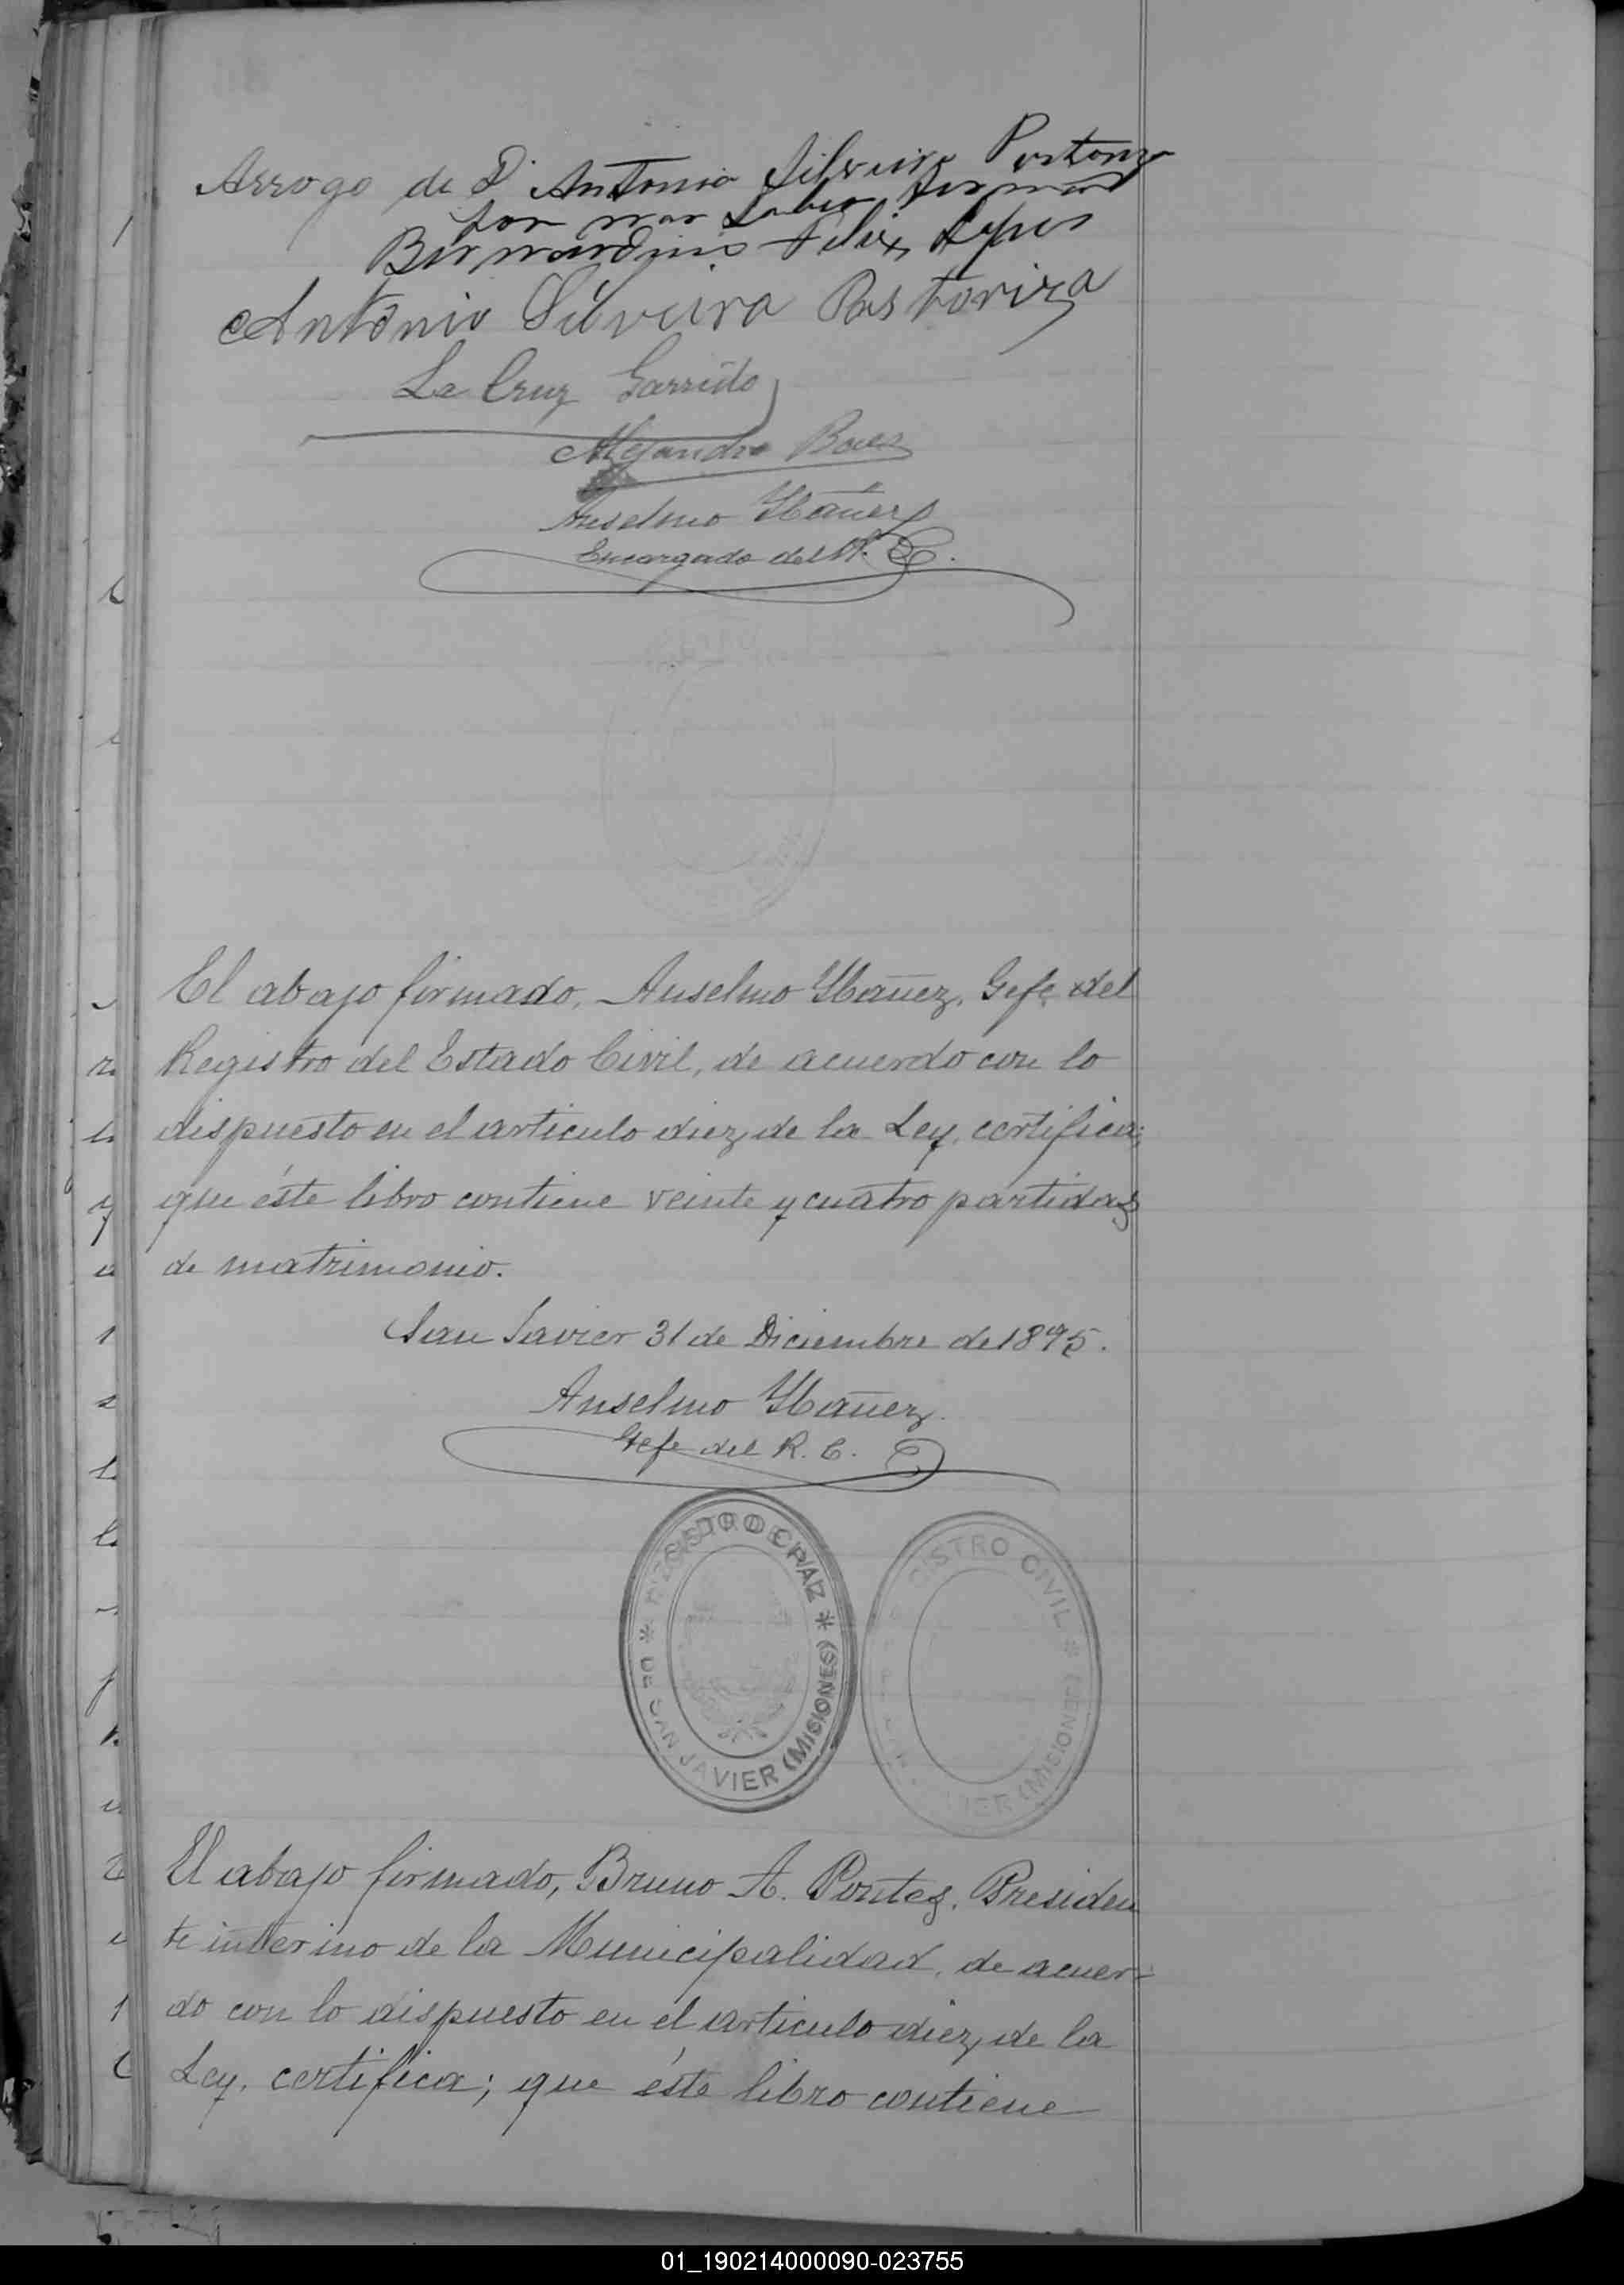 Arrogo de D. Antonio Silveira
por nao Saber
Bernardino Felix Lopes
Antonio Silveira Pastoriza
La Cruz Garrido
Alejandro Baez
Anselmo Ybañez
Encargado del R. C.
El abajo firmado, Anselmo Ybañez, Gefe del
Registro del Estado Civil, de acuerdo con lo
dispuesto en el articulo diez de la Ley, certifica;
que éste libro contiene veinte y cuatro partidas
de matrimonio.
San Javier 31 de Diciembre de 1895.
Anselmo Ybañez.
Gefe del R. C.
* DE SAN JAVIER (MISIONES) *
GISTRO CIVIL * (MISIONES)
El abajo firmado, Bruno A. Pontes, Presiden
te interino de la Municipalidad, de acuer-
do con lo dispuesto en el articulo diez, de la
Ley, certifica; que éste libro contiene
01_190214000090-023755